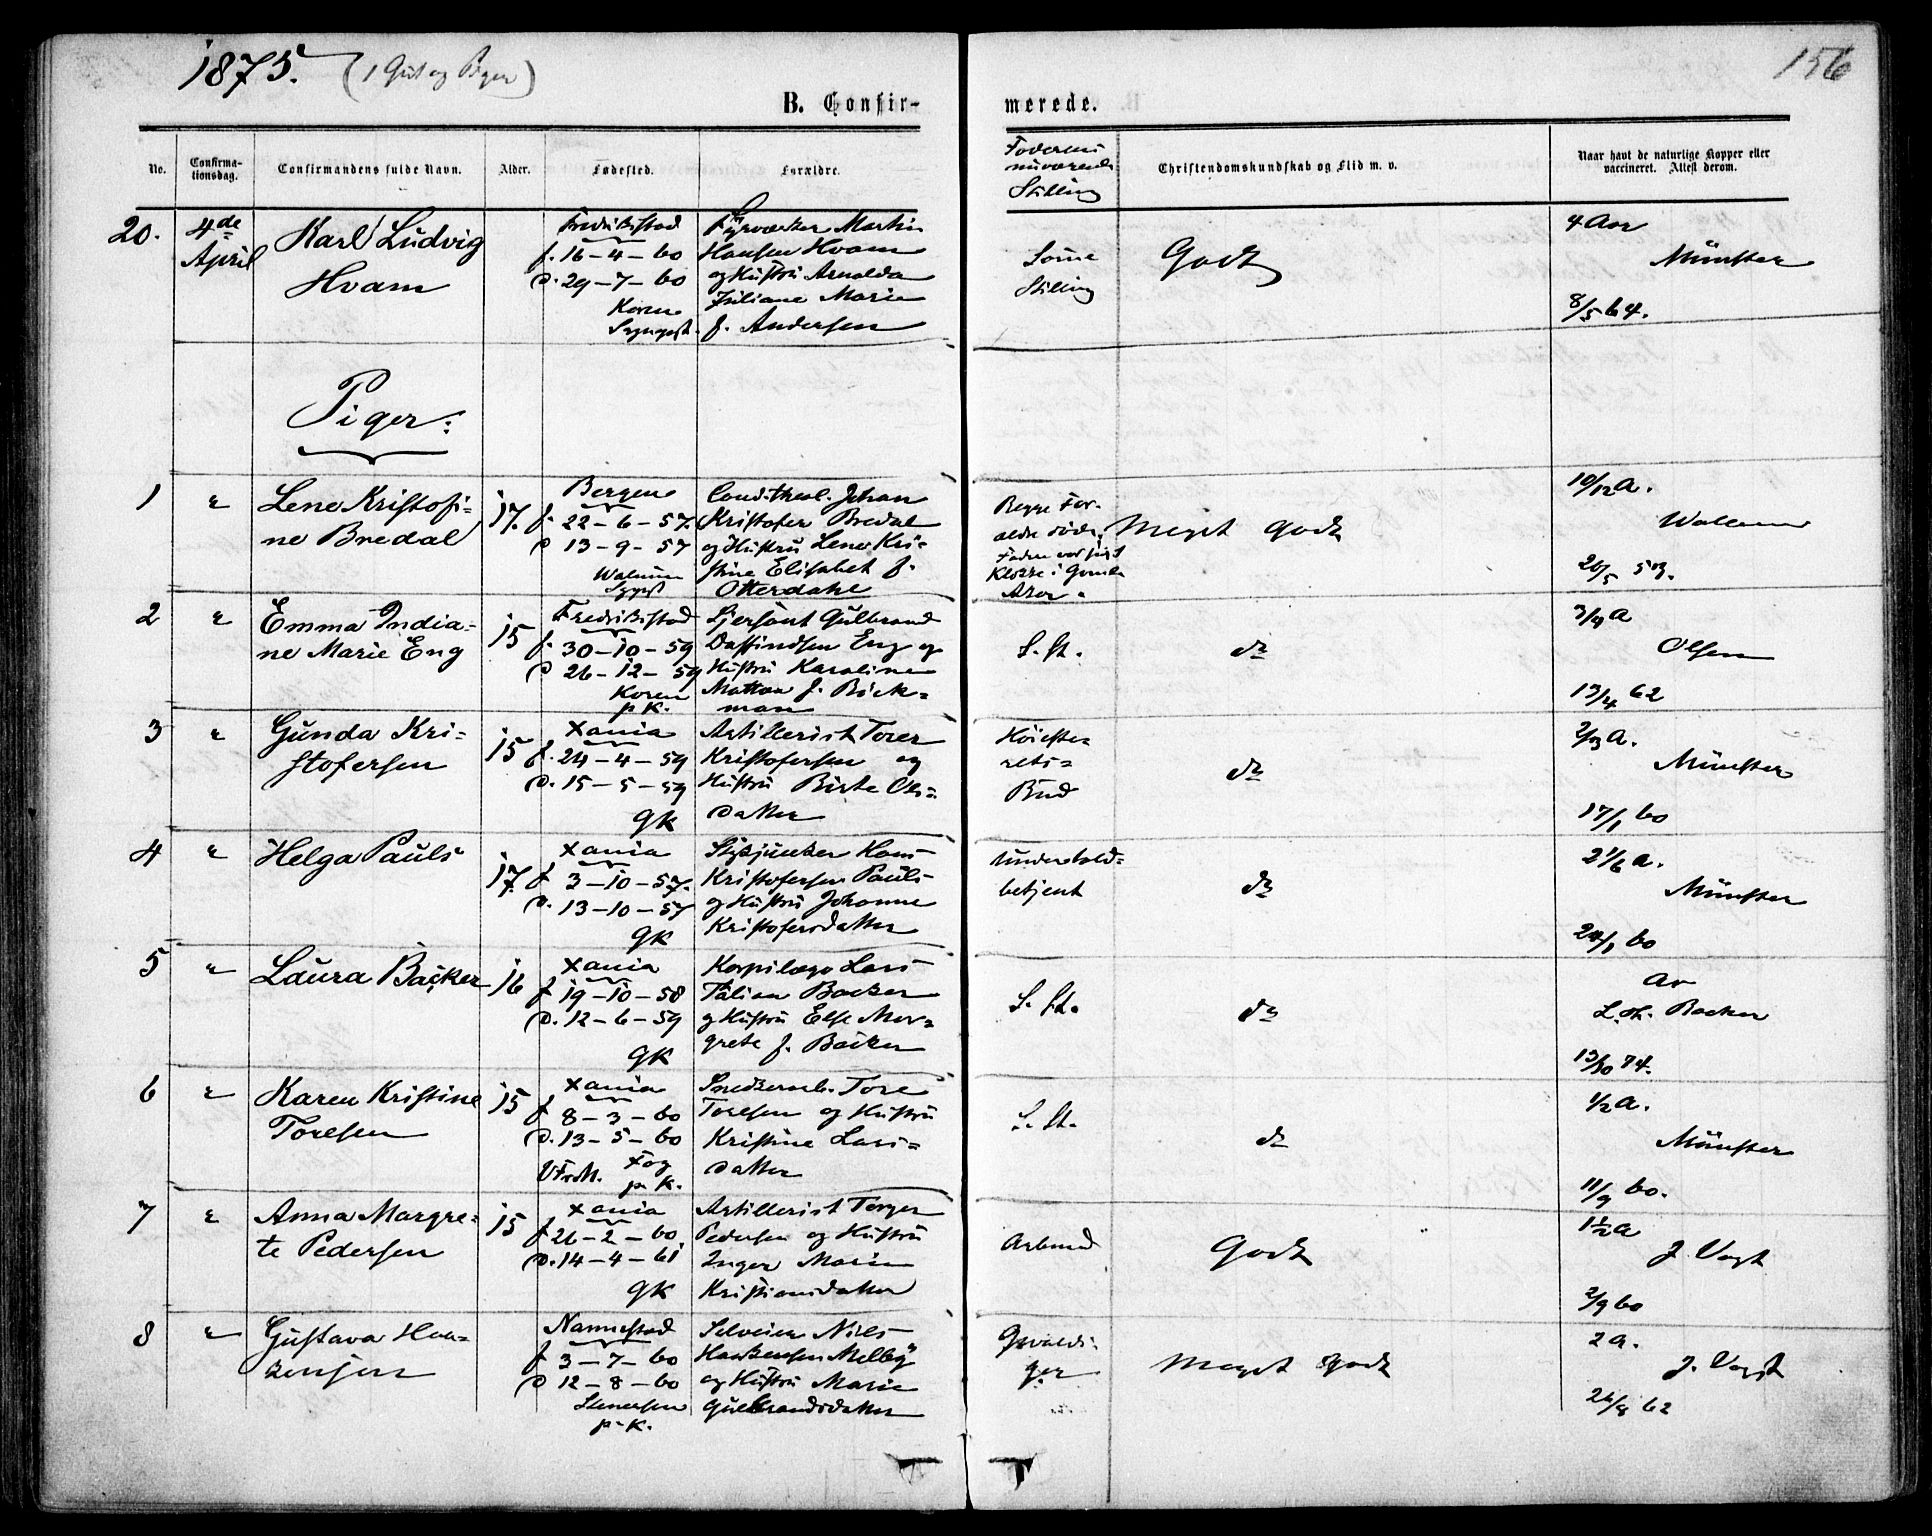 1875. (1 Gut og Piger)
156
B. Confir-
merede.
No.
Confirma-
tionsdag.
Confirmandens fulde Navn.
Alder.
Fødested.
Forældre.
Faderens
nuværende
Stilling
Christendomskundskab og Flid m. v.
Naar havt de naturlige Kopper eller
vaccineret. Attest derom.
20.
4de
April
Karl Ludvig
Hvam
Fredriksstad
f. 16-4-60
d. 29-7-60
Koren
Sognepst.
Fyrværker Martin
Hansen Hvam
og Hustru Arnolda
Juliane Marie
f. Andersen
Samme
Stilling
Godt
4 Aar
Münster
8/5 64.
Piger:
1
"
Lene Kristofi-
ne Bredal
17.
Bergen
f. 22-6-57.
d 13-9-57
Walnum
Sgpst
Cand. theol. Johan
Kristofer Bredal
og Hustru Lene Kri-
stine Elisabet f.
Otterdahl
Begge For-
ældre døde,
Faden var sidst
Klokker i Gamle
Aker.
Meget Godt
10/12 a.
20/5 58.
2
"
Emma India-
ne Marie Eng
15
Fredriksstad
f. 30-10-59
d 26-12-59
Koren
p. K.
Sjersant Gulbrand
Daffindsen Eng og
Hustru Karoline
Mattea f. Böck-
man
S. St.
do
3/4 a
Olsen
13/4 62
3
"
Gunda Kri-
stofersen
15
Xania
f. 24-4-59
d. 15-5-59
GK
Artillerist Torer
Kristofersen og
Hustru Birte Ols-
datter
Høieste-
rets-
Bud
do
2/3 a.
Münster
17/1 60
4
"
Helga Pauls
17.
Xania
f 3-10-57.
d. 13-10-57
GK
Stykjunker Hans
Kristofersen Pauls
og Hustru Johanne
Kristofersdatter
Underhold-
betjent
do
2 1/6 a.
Münster
24/1 60
5
"
Laura Backer
16
Xania
f 19-10-58
d. 12-6-59
GK
Korpslæge Lars
Tulian Backer
og Hustru Else Mar-
grete f. Backer
S. St.
do
Ar
L. T. Backer
13/10 74.
6
"
Karen Kristine
Toresen
15
Xania
f 8-3-60
d. 13-5-60
V Frih. Fog
p. K.
Snedkerml. Tore
Toresen og Hustru
Kristine Lars-
datter
S. St.
do
1/2 a.
Münster
11/9 60.
7
"
Anna Margre-
te Pedersen
15
Xania
f 26-2-60
d. 14-4-61
GK
Artillerist Torger
Pedersen og Hustru
Inger Marie
Kristiansdatter
Arbmd
Godt
1 1/2 a
J. Vogt
2/9 60
8
"
Gustava Haa-
kensen
Nannestad
f 3-7-60
d 12-8-60
Stenersen
p. K.
Selveier Niels
Haakensen Melby
og Hustru Marie
Gulbrandsdatter
Gevaldi-
ger
Meget Godt
2 a.
J. Vogt
26/8 62